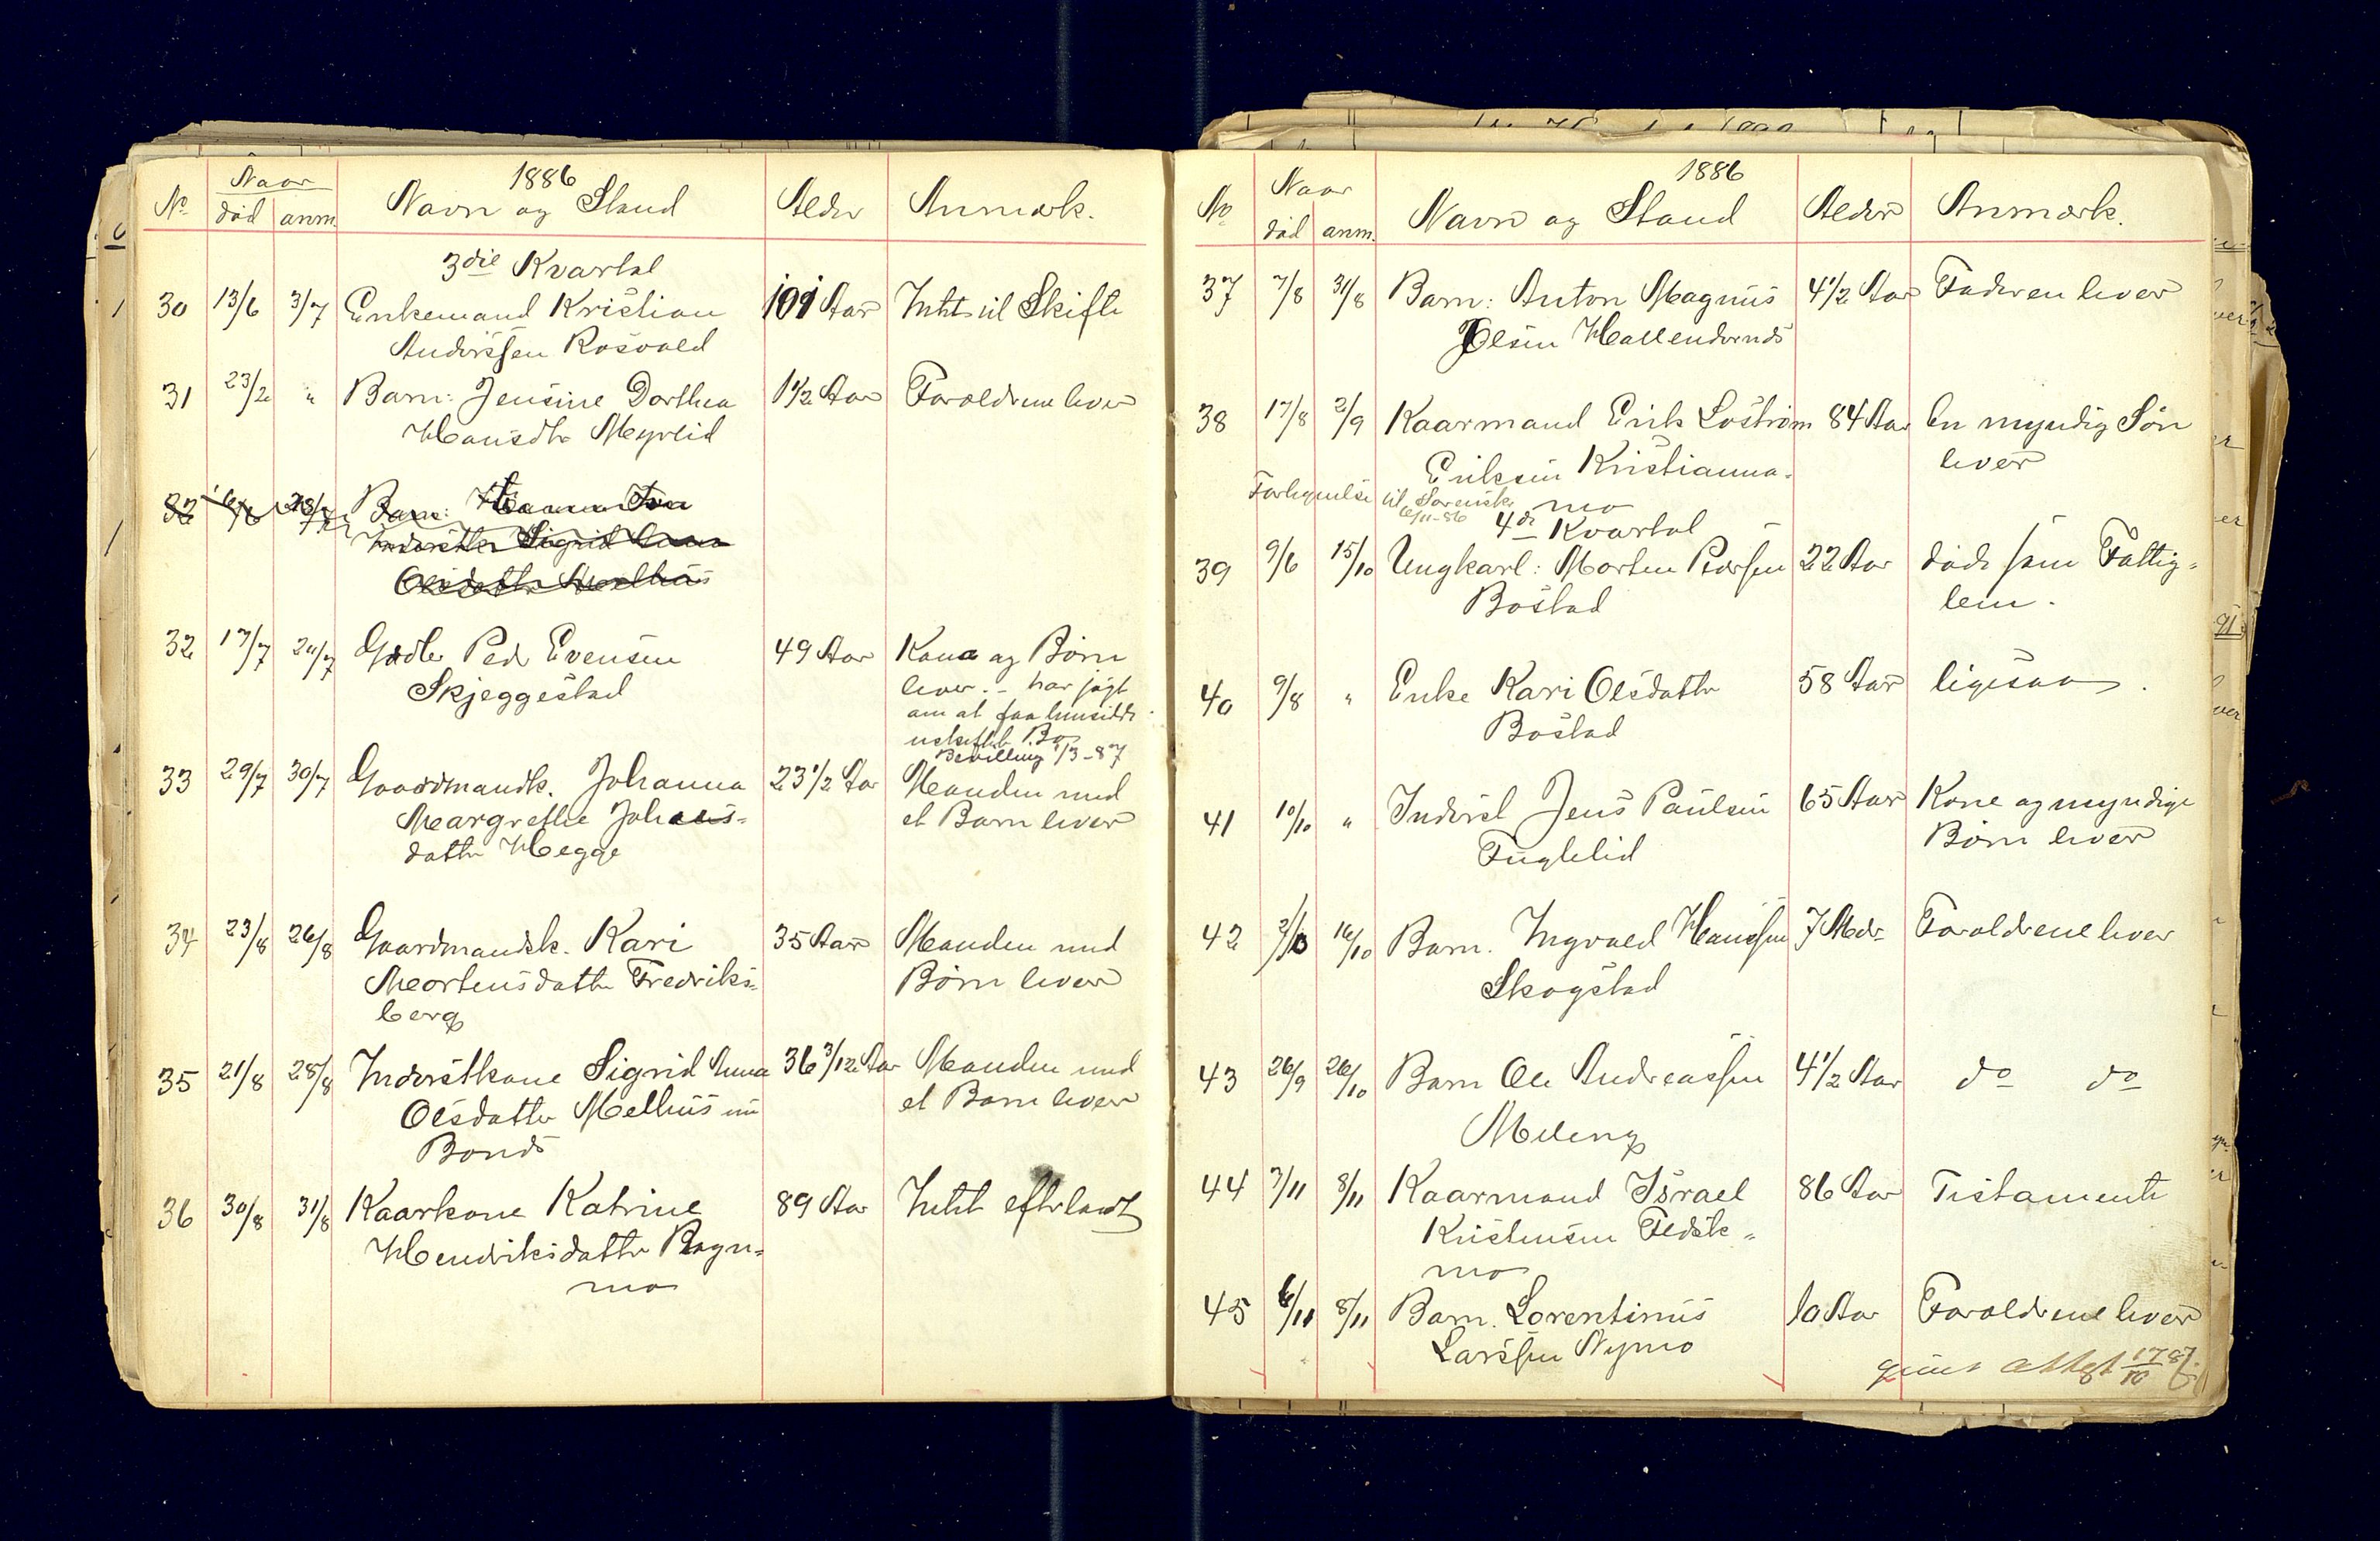 1886
No Naar Navn og Stand Alder Anmærk.
død anm.
3die Kvartal
30 13/6 3/7 Enkemand Kristian 101 Aar Intet til Skifte
Anderssen Rosvold
31 23/2 " Barn: Jensine Dorthea 1 1/2 Aar Forældrene lever
Hansdtr Myrlid
32 Barn:
Inderster Sigrid Anna
Olsdatter Melhus
32 17/7 24/7 Gdbr Peder Evensen 49 Aar Kona og Børn
Skjeggestad lever. - har søgt
om at faa hensidde
i uskiftet Bo
Bevilling 1/3-87
33 29/7 30/7 Gaardmandsk. Johanna 23 1/2 Aar Manden med
Margrethe Johans- et Barn lever
datter Hegge
34 23/8 26/8 Gaardmandsk. Kari 35 Aar Manden med
Mortensdatter Fredriks- Børn lever
berg
35 21/8 28/8 Inderstkone Sigrid Anna 36 3/12 Aar Manden med
Olsdatter Melhus et Barn lever
36 30/8 31/8 Kaarkone Katrine 89 Aar Intet efterladt
Hendriksdatter Rogn-
mo
1886
No Naar Navn og Stand Alder Anmærk.
død anm.
37 7/8 31/8 Barn: Anton Magnus 4 1/2 Aar Faderen lever
Olsen
38 17/8 2/9 Kaarmand Erik 84 Aar En myndig Søn
Eriksen Kristianna- lever
mo
til Sorensk.
6/11-86
4de Kvartal
39 9/6 15/10 Ungkarl: Morten Pedersen 22 Aar døde som Fattig-
Bostad lem.
40 9/8 " Enke Kari Olsdatter 58 Aar ligesaa.
Bostad
41 10/10 " Inderst Jens Paulsen 65 Aar Kone og myndige
Fuglelid Børn lever
42 2/10 16/10 Barn. Ingvald Hanssen 7 Mdr Forældrene lever
Skogstad
43 26/9 26/10 Barn Ole Andreassen 4 1/2 Aar do do
Moen
44 3/11 8/11 Kaarmand Israel 86 Aar Testamente
Kristensen
mo
45 6/11 8/11 Barn. Lorentinus 10 Aar Forældrene lever
Larssen Nymo